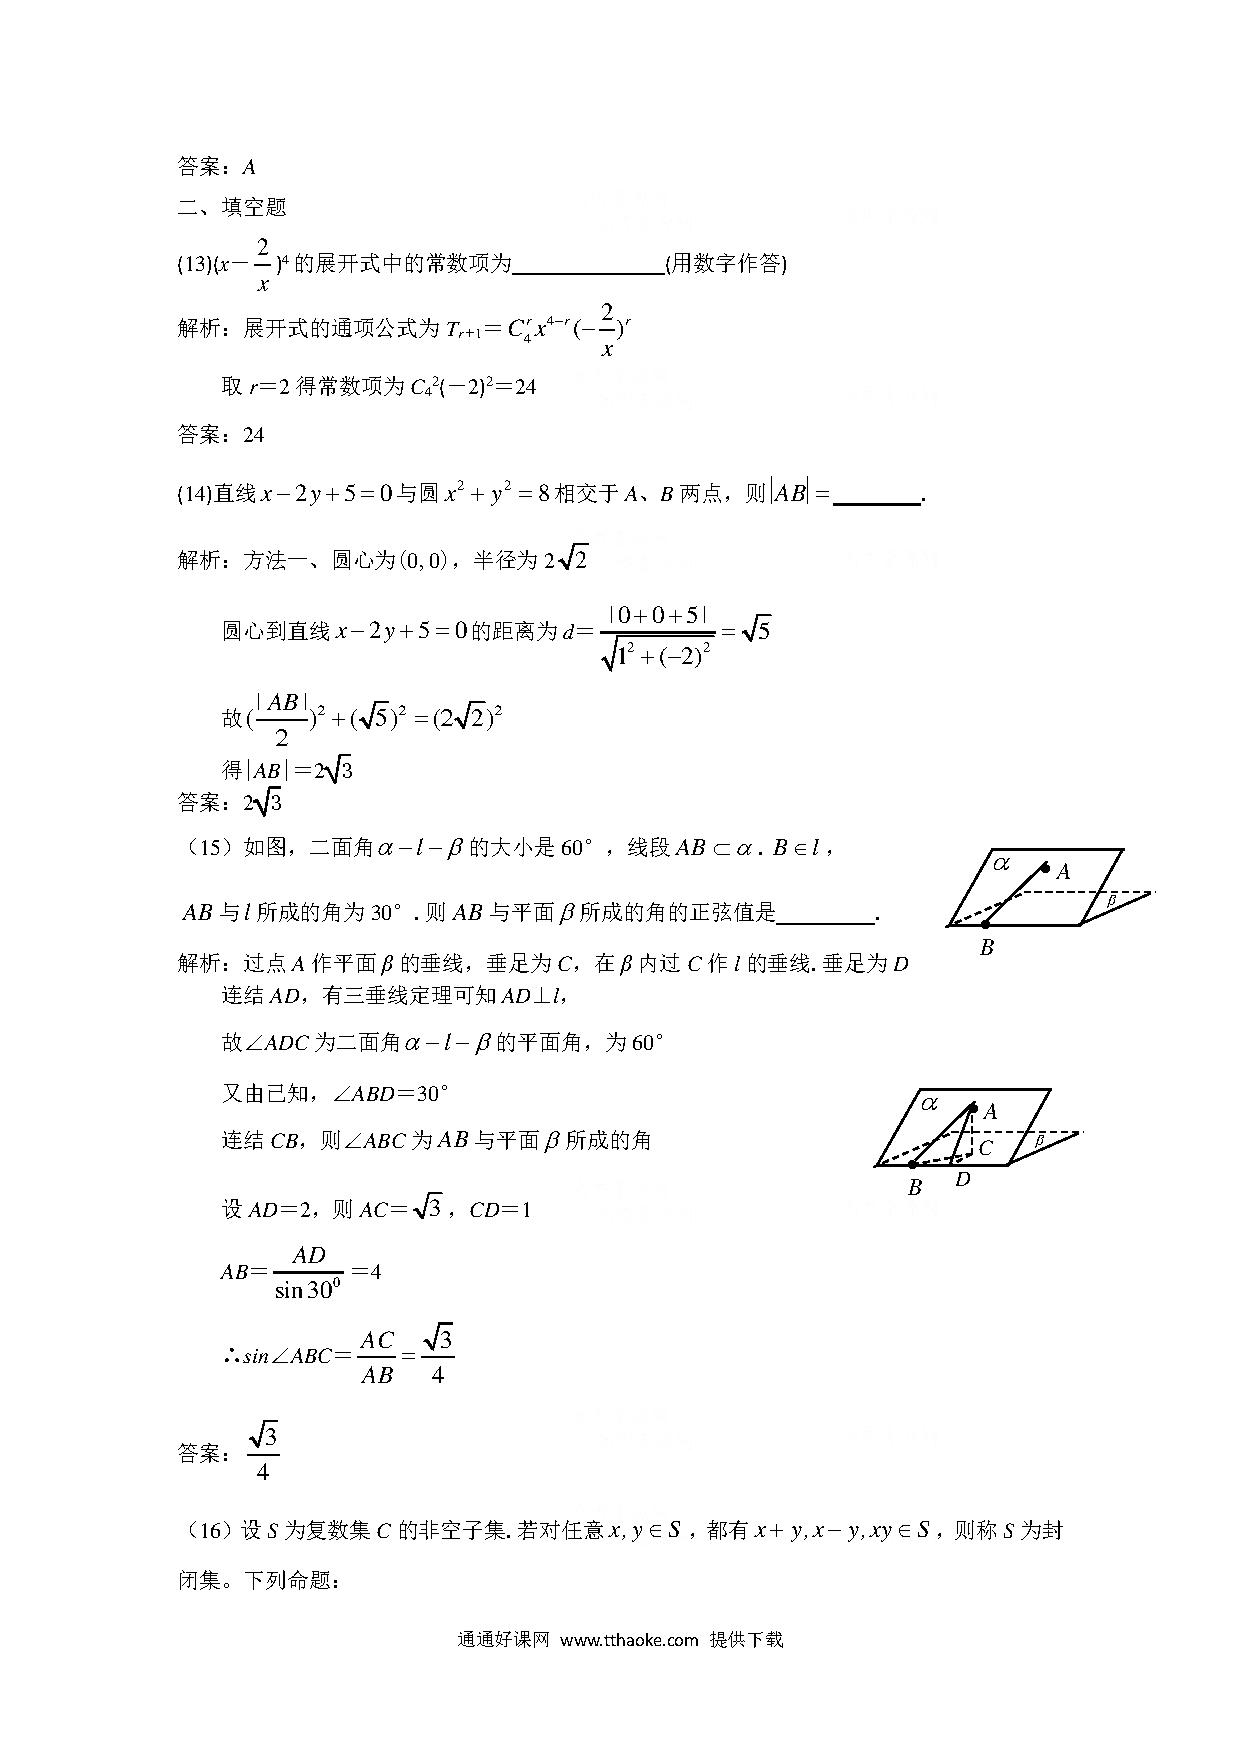 答案：A
二、填空题
(13)(x－2/x)⁴的展开式中的常数项为______________(用数字作答)
解析：展开式的通项公式为Tᵣ₊₁＝C₄ʳx⁴⁻ʳ(−2/x)ʳ
取r＝2得常数项为C₄²(－2)²＝24
答案：24
(14)直线x−2y+5=0与圆x²+y²=8相交于A、B两点，则|AB|=________.
解析：方法一、圆心为(0,0)，半径为2√2
圆心到直线x−2y+5=0的距离为d＝|0+0+5|/√(1²+(−2)²)=√5
故(|AB|/2)²+(√5)²=(2√2)²
得|AB|＝2√3
答案：2√3
（15）如图，二面角α−l−β的大小是60°，线段AB⊂α.B∈l，
α A β B
AB与l所成的角为30°.则AB与平面β所成的角的正弦值是_________.
解析：过点A作平面β的垂线，垂足为C，在β内过C作l的垂线.垂足为D
连结AD，有三垂线定理可知AD⊥l，
故∠ADC为二面角α−l−β的平面角，为60°
又由已知，∠ABD＝30°
连结CB，则∠ABC为AB与平面β所成的角
α A C β B D
设AD＝2，则AC＝√3，CD＝1
AB＝AD/sin30⁰＝4
∴sin∠ABC＝AC/AB=√3/4
答案：√3/4
（16）设S为复数集C的非空子集.若对任意x,y∈S，都有x+y,x−y,xy∈S，则称S为封
闭集。下列命题：
通通好课网 www.tthaoke.com 提供下载